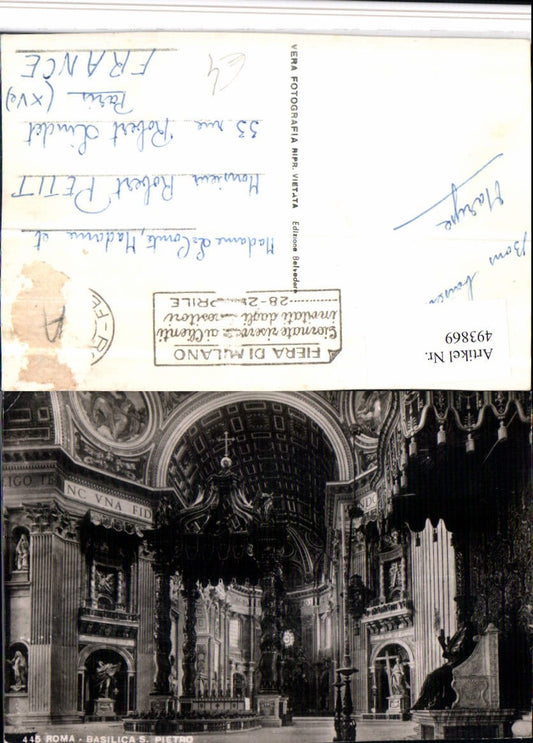 Bons baisers
Maryse
Madame LeComte, Madame et
Monsieur Robert PETIT
33 rue Robert Lindet
Paris (XVe)
FRANCE
VERA FOTOGRAFIA RIPR. VIETATA Edizione Belvedere
FIERA DI MILANO
Giornate riservate ai clienti
invitati dagli espositori
28-2 APRILE
Artikel Nr.
493869
LIGO TE
NC VNA FID
445 ROMA - BASILICA S. PIETRO